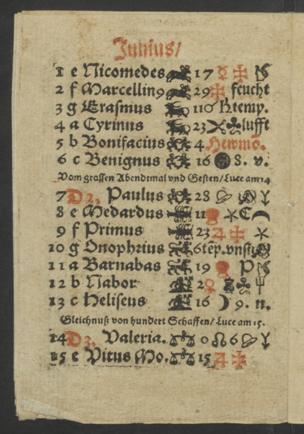 Junius/
1 e Nicomedes 17
2 f Marcellin9 29 feucht
3 g Erasmus 11 temp.
4 a Cyrinus 23 lufft
5 b Bonifacius 4 Hewmo.
6 c Benignus 16 8. v.
Vom grossen Abendtmal vnd Gesten/Luce am 14
7 D 2. Paulus 28
8 e Medardus 11
9 f Primus 23
10 g Onophrius 6
11 a Barnabas 19
12 b Nabor 2
13 c Heliseus 16 9. n.
Gleichnuß von hundert Schaffen/Luce am 15.
14 D 3. Valeria. 0
15 e Vitus Mo. 15